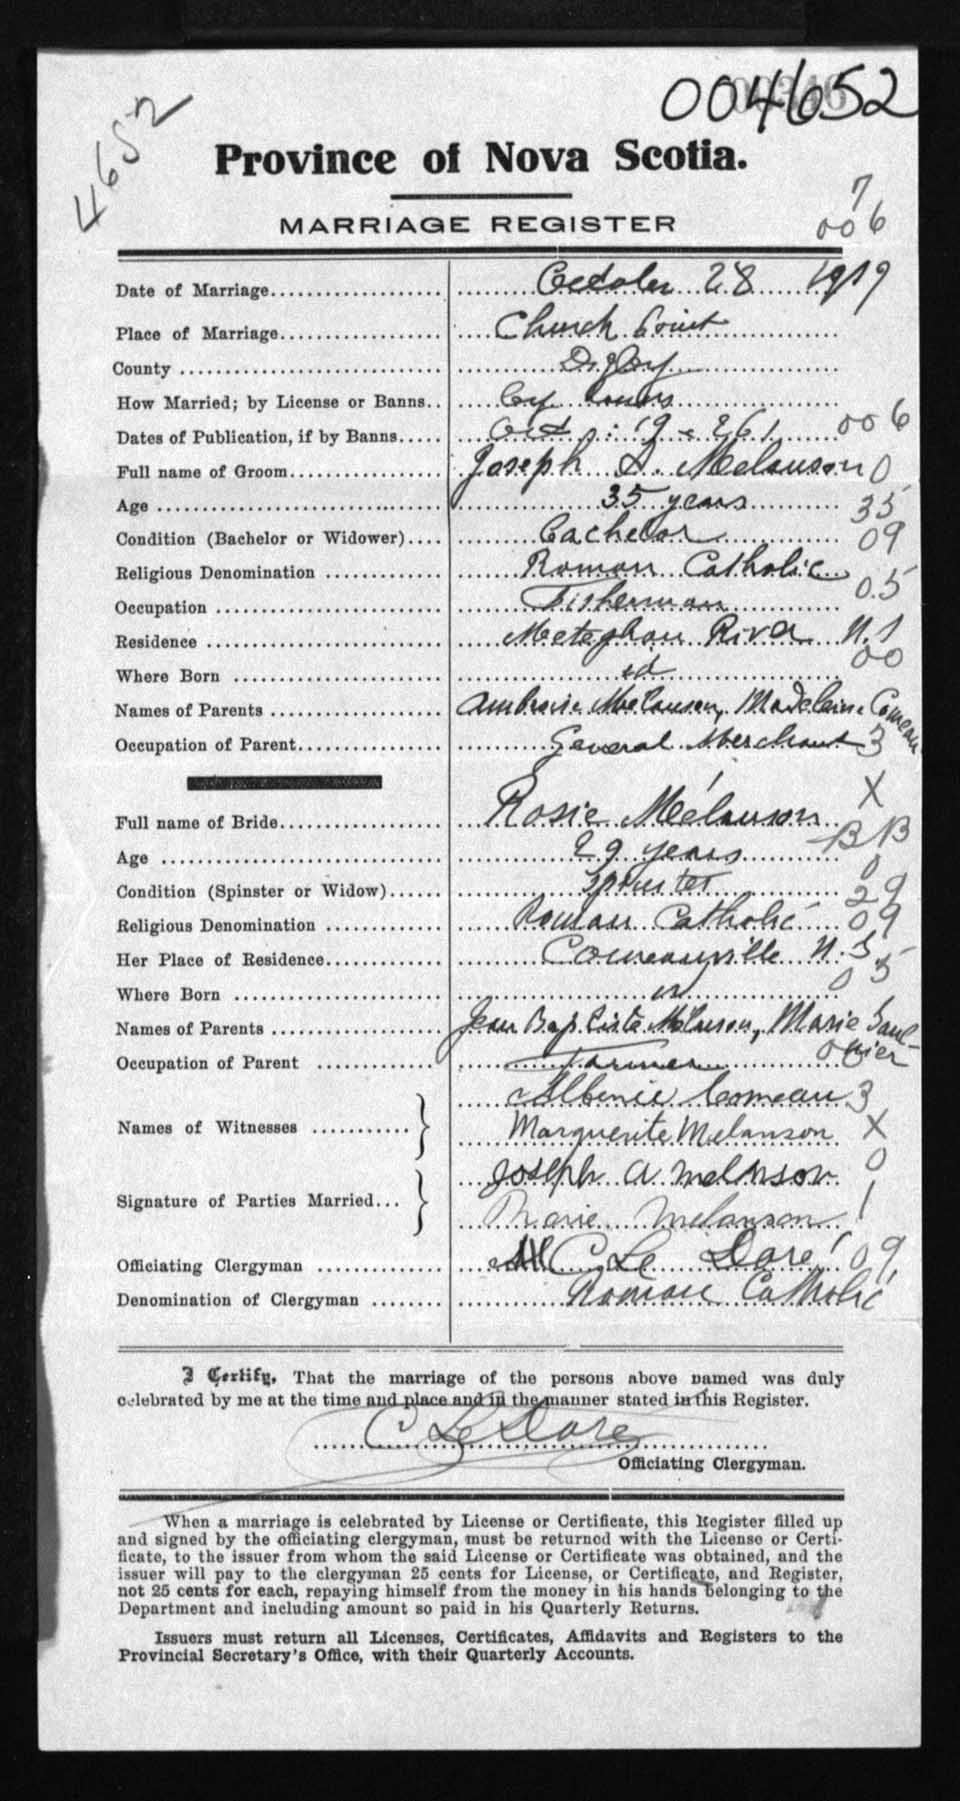 004652
4652
Province of Nova Scotia.
MARRIAGE REGISTER
7
006
Date of Marriage October 28 1919
Place of Marriage Church Point
County Digby
How Married; by License or Banns By banns
Dates of Publication, if by Banns Oct : 19 & 26 006
Full name of Groom Joseph A. Melanson 0
Age 35 years 35
Condition (Bachelor or Widower) Bachelor 09
Religious Denomination Roman Catholic
Occupation Fisherman 05
Residence Meteghan River N.S
Where Born id 00
Names of Parents Ambroise Melanson, Madeleine Comeau
Occupation of Parent General Merchant 3
X
Full name of Bride Rosie Mélanson
Age 29 years BB
Condition (Spinster or Widow) Spinster 0
29
Religious Denomination Roman Catholic 09
Her Place of Residence Comeauville N.S
Where Born id 05
Names of Parents Jean Baptiste Melanson, Marie Saulnier
Occupation of Parent Farmer
Names of Witnesses Albenie Comeau 3
Marguerite Melanson X
Signature of Parties Married Joseph A Melanson 0
Marie Melanson 1
Officiating Clergyman C Le Doré 09
Denomination of Clergyman Roman Catholic
I Certify, That the marriage of the persons above named was duly
celebrated by me at the time and place and in the manner stated in this Register.
C Le Doré
Officiating Clergyman.
When a marriage is celebrated by License or Certificate, this Register filled up
and signed by the officiating clergyman, must be returned with the License or Certi-
ficate, to the issuer from whom the said License or Certificate was obtained, and the
issuer will pay to the clergyman 25 cents for License, or Certificate, and Register,
not 25 cents for each, repaying himself from the money in his hands belonging to the
Department and including amount so paid in his Quarterly Returns.
Issuers must return all Licenses, Certificates, Affidavits and Registers to the
Provincial Secretary's Office, with their Quarterly Accounts.